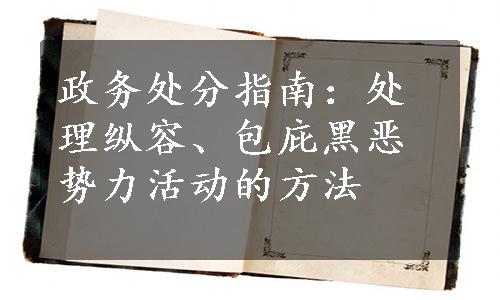 政务处分指南：处
理纵容、包庇黑恶
势力活动的方法